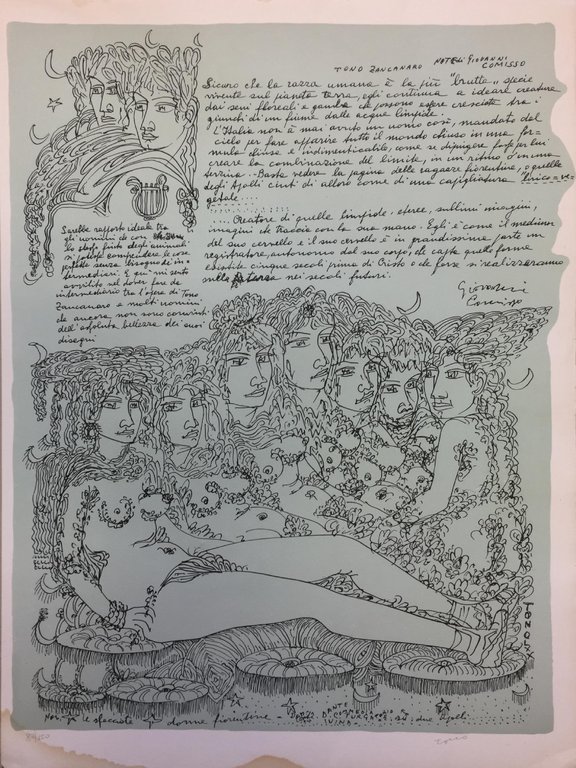 TONO ZANCANARO NOTE DI GIOVANNI
COMISSO
Sicuro che la razza umana è la più "brutta" specie
vivente sul pianeta terra, egli continua a ideare creature
dai semi floreali e gambe che possono essere cresciute tra i
giunchi di un fiume dalle acque limpide.
L'Italia non à mai avuto un uomo così, mandato dal
cielo per fare apparire tutto il mondo chiuso in una for-
mula chiusa e indimenticabile, come se dipingere fosse per lui
creare la combinazione del limite, in un ritmo d'una
terzina. Basta vedere la pagina delle ragazze fiorentine, o quella
degli Apolli cinti di alloro come di una capigliatura lirico=ve=
getale....
.... Creatore di quelle limpide, eteree, sublimi immagini,
immagini che traccia con la sua mano. Egli è come il medium
del suo cervello e il suo cervello è in grandissima parte un
registratore, autonomo dal suo corpo, che capta quelle forme
esistite cinque secoli prima di Cristo o che forse si realizzeranno
sulla terra nei secoli futuri.
Giovanni
Comisso
Sarebbe rapporto ideale tra
gli uomini se con
e sfoghi fatti degli animali
si potesse comprendere le cose
perfette senza bisogno di in=
termediari. E qui mi sento
avvilito nel dover fare da
intermediario tra l'opera di Tono
Zancanaro e molti uomini
che ancora non sono convinti
dell'assoluta bellezza dei suoi
disegni
TONO
le sfacciate donne fiorentine - DANTE
DIVINA
due Apolli
Tono